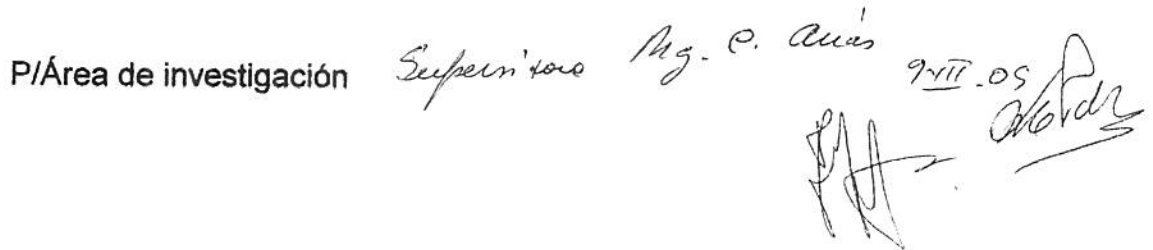 P/Área de investigación Supervisora Mg. C. Arias
9-VII-05